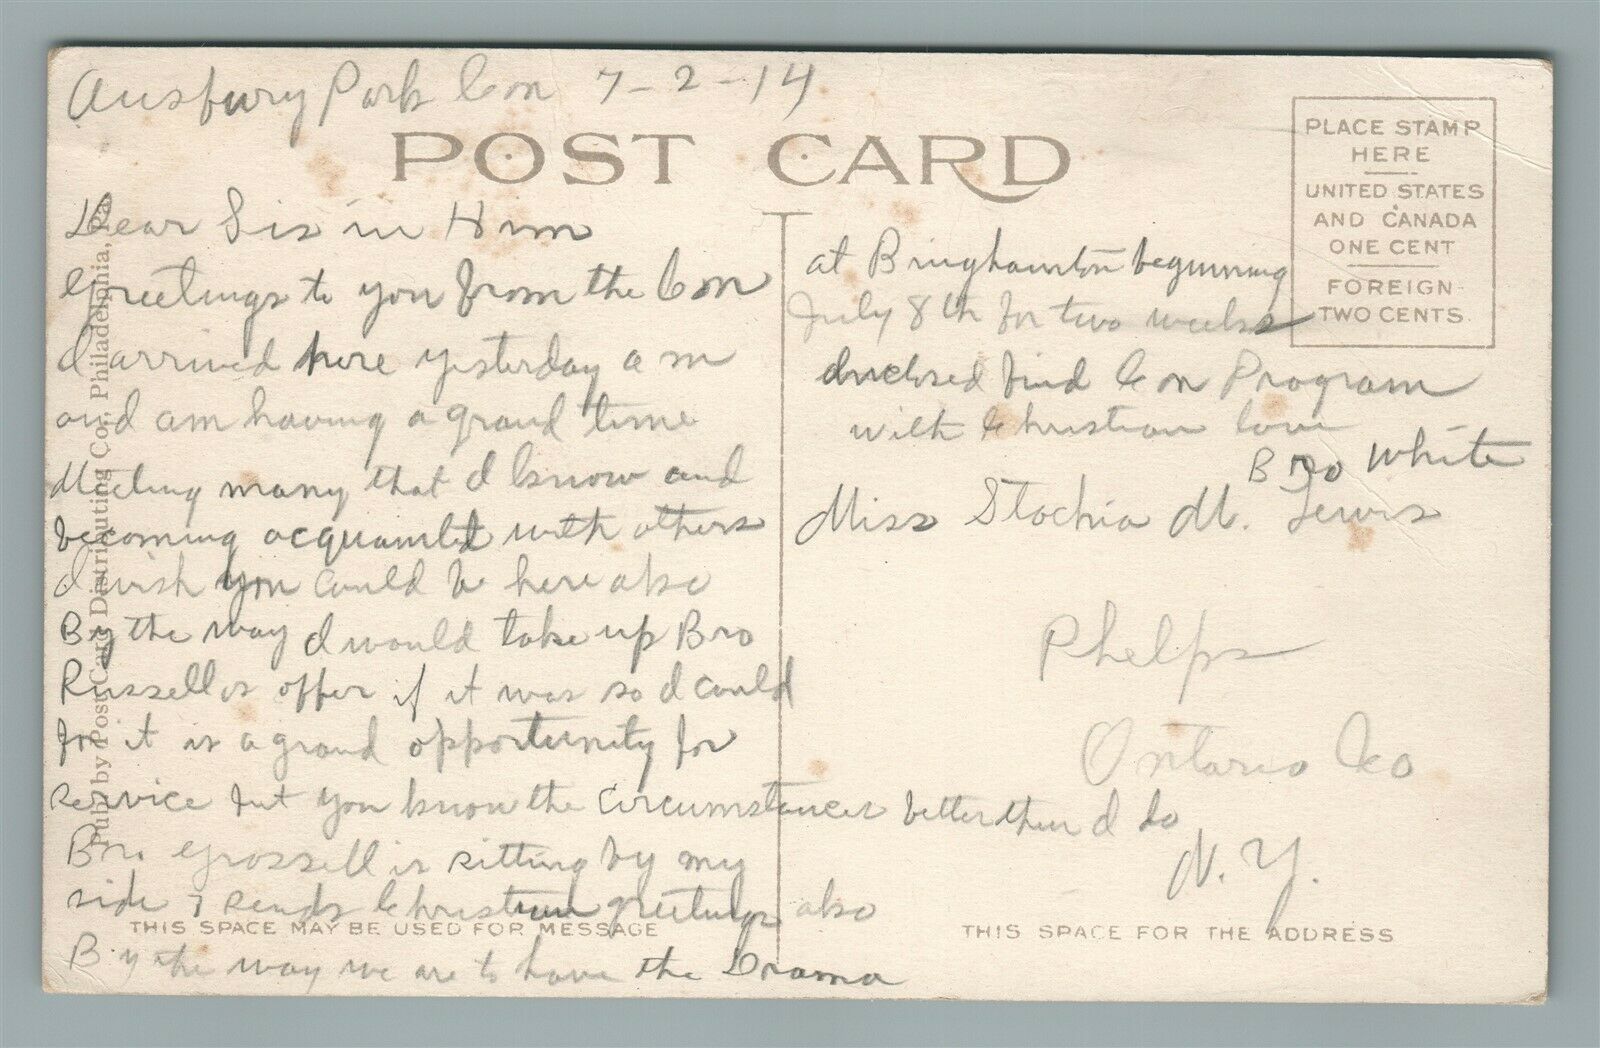 Ausbury Park Con 7-2-14
POST CARD
PLACE STAMP
HERE
UNITED STATES
AND CANADA
ONE CENT
FOREIGN
TWO CENTS.
Pub. by Post Card Distributing Co., Philadelphia, Pa.
Dear Sis in Him
Greetings to you from the Con
I arrived here yesterday a m
and am having a grand time
Meeting many that I know and
becoming acquainted with others
I wish you could be here also
By the way I would take up Bro
Russells offer if it was so I could
for it is a grand opportunity for
service but you know the circumstances better then I do
Bro. Grossell is sitting by my
side & sends Christian greetings also
By the way we are to have the Drama
at Binghamton beginning
July 8th for two weeks
Enclosed find Con Program
with Christian love
Bro White
Miss Stochia M. Lewis
Phelps
Ontario Co
N. Y.
THIS SPACE MAY BE USED FOR MESSAGE
THIS SPACE FOR THE ADDRESS